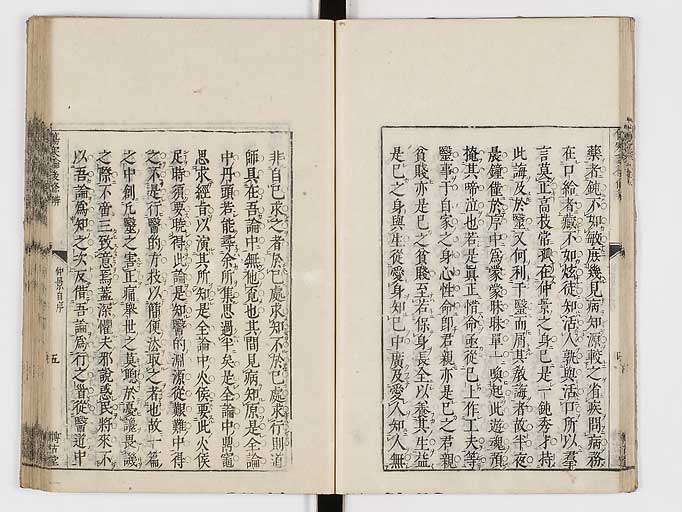 藥者鈍不如敏庶幾見病知源較之省疾問病務
在口給者藏不如炫徒知活人孰與活口所以羣
言莫正高枝常孤在仲景之身已是一鈍秀才持
此誨及於醫又何利于醫而屑其教誨者故半夜
晨鐘僅於序中為蒙蒙昧昧單一喚起此遊魂預
掩其啼泣也若是真正惜命亟從已上作工夫等
醫事于自家之身心性命即君親亦是已之君親
貧賤亦是已之貧賤至若保身長全以養其生益
是已之身與生從愛身知已中廣及愛人知人無
非自已求之者於已處求知不於已處求行則道
師具在吾論中無他覓也其間見病知源是全論
中丹頭若能尋余所集思過半矣是全論中鼎竈
思求經旨以演其所知是全論中火候要此火候
足時須要曉得此論是知醫的淵源從艱難中得
之不是行醫的方技以簡便法取之者也故一篇
之中創凡醫之害正痛舉世之莫聰於憂讒畏譏
之際不啻三致意焉蓋深懼夫邪說惑民將來不
以吾論為知之次反借吾論為行之首從醫道中
仲景自序
五